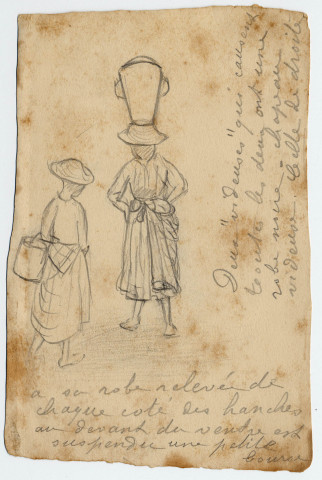 Deux "videuses" qui causent
toutes les deux ont une
robe noire chapeau
videuse. Celle de droite
a sa robe relevée de
chaque coté des hanches
au devant du ventre est
suspendue une petite
bourse